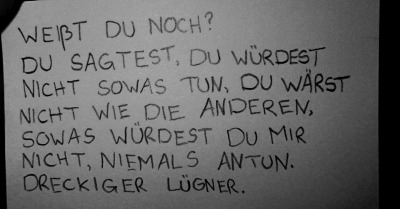 WEIßT DU NOCH?
DU SAGTEST, DU WÜRDEST
NICHT SOWAS TUN, DU WÄRST
NICHT WIE DIE ANDEREN,
SOWAS WÜRDEST DU MIR
NICHT, NIEMALS ANTUN.
DRECKIGER LÜGNER.